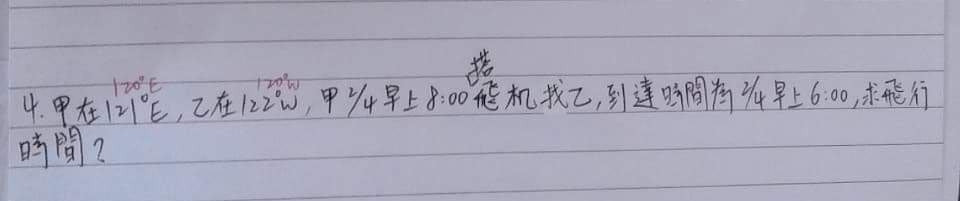 120°E 120°W 搭
4. 甲在121°E, 乙在122°W, 甲 2/4 早上 8:00 飛机找乙, 到達時間為 2/4 早上 6:00, 求飛行
時間?